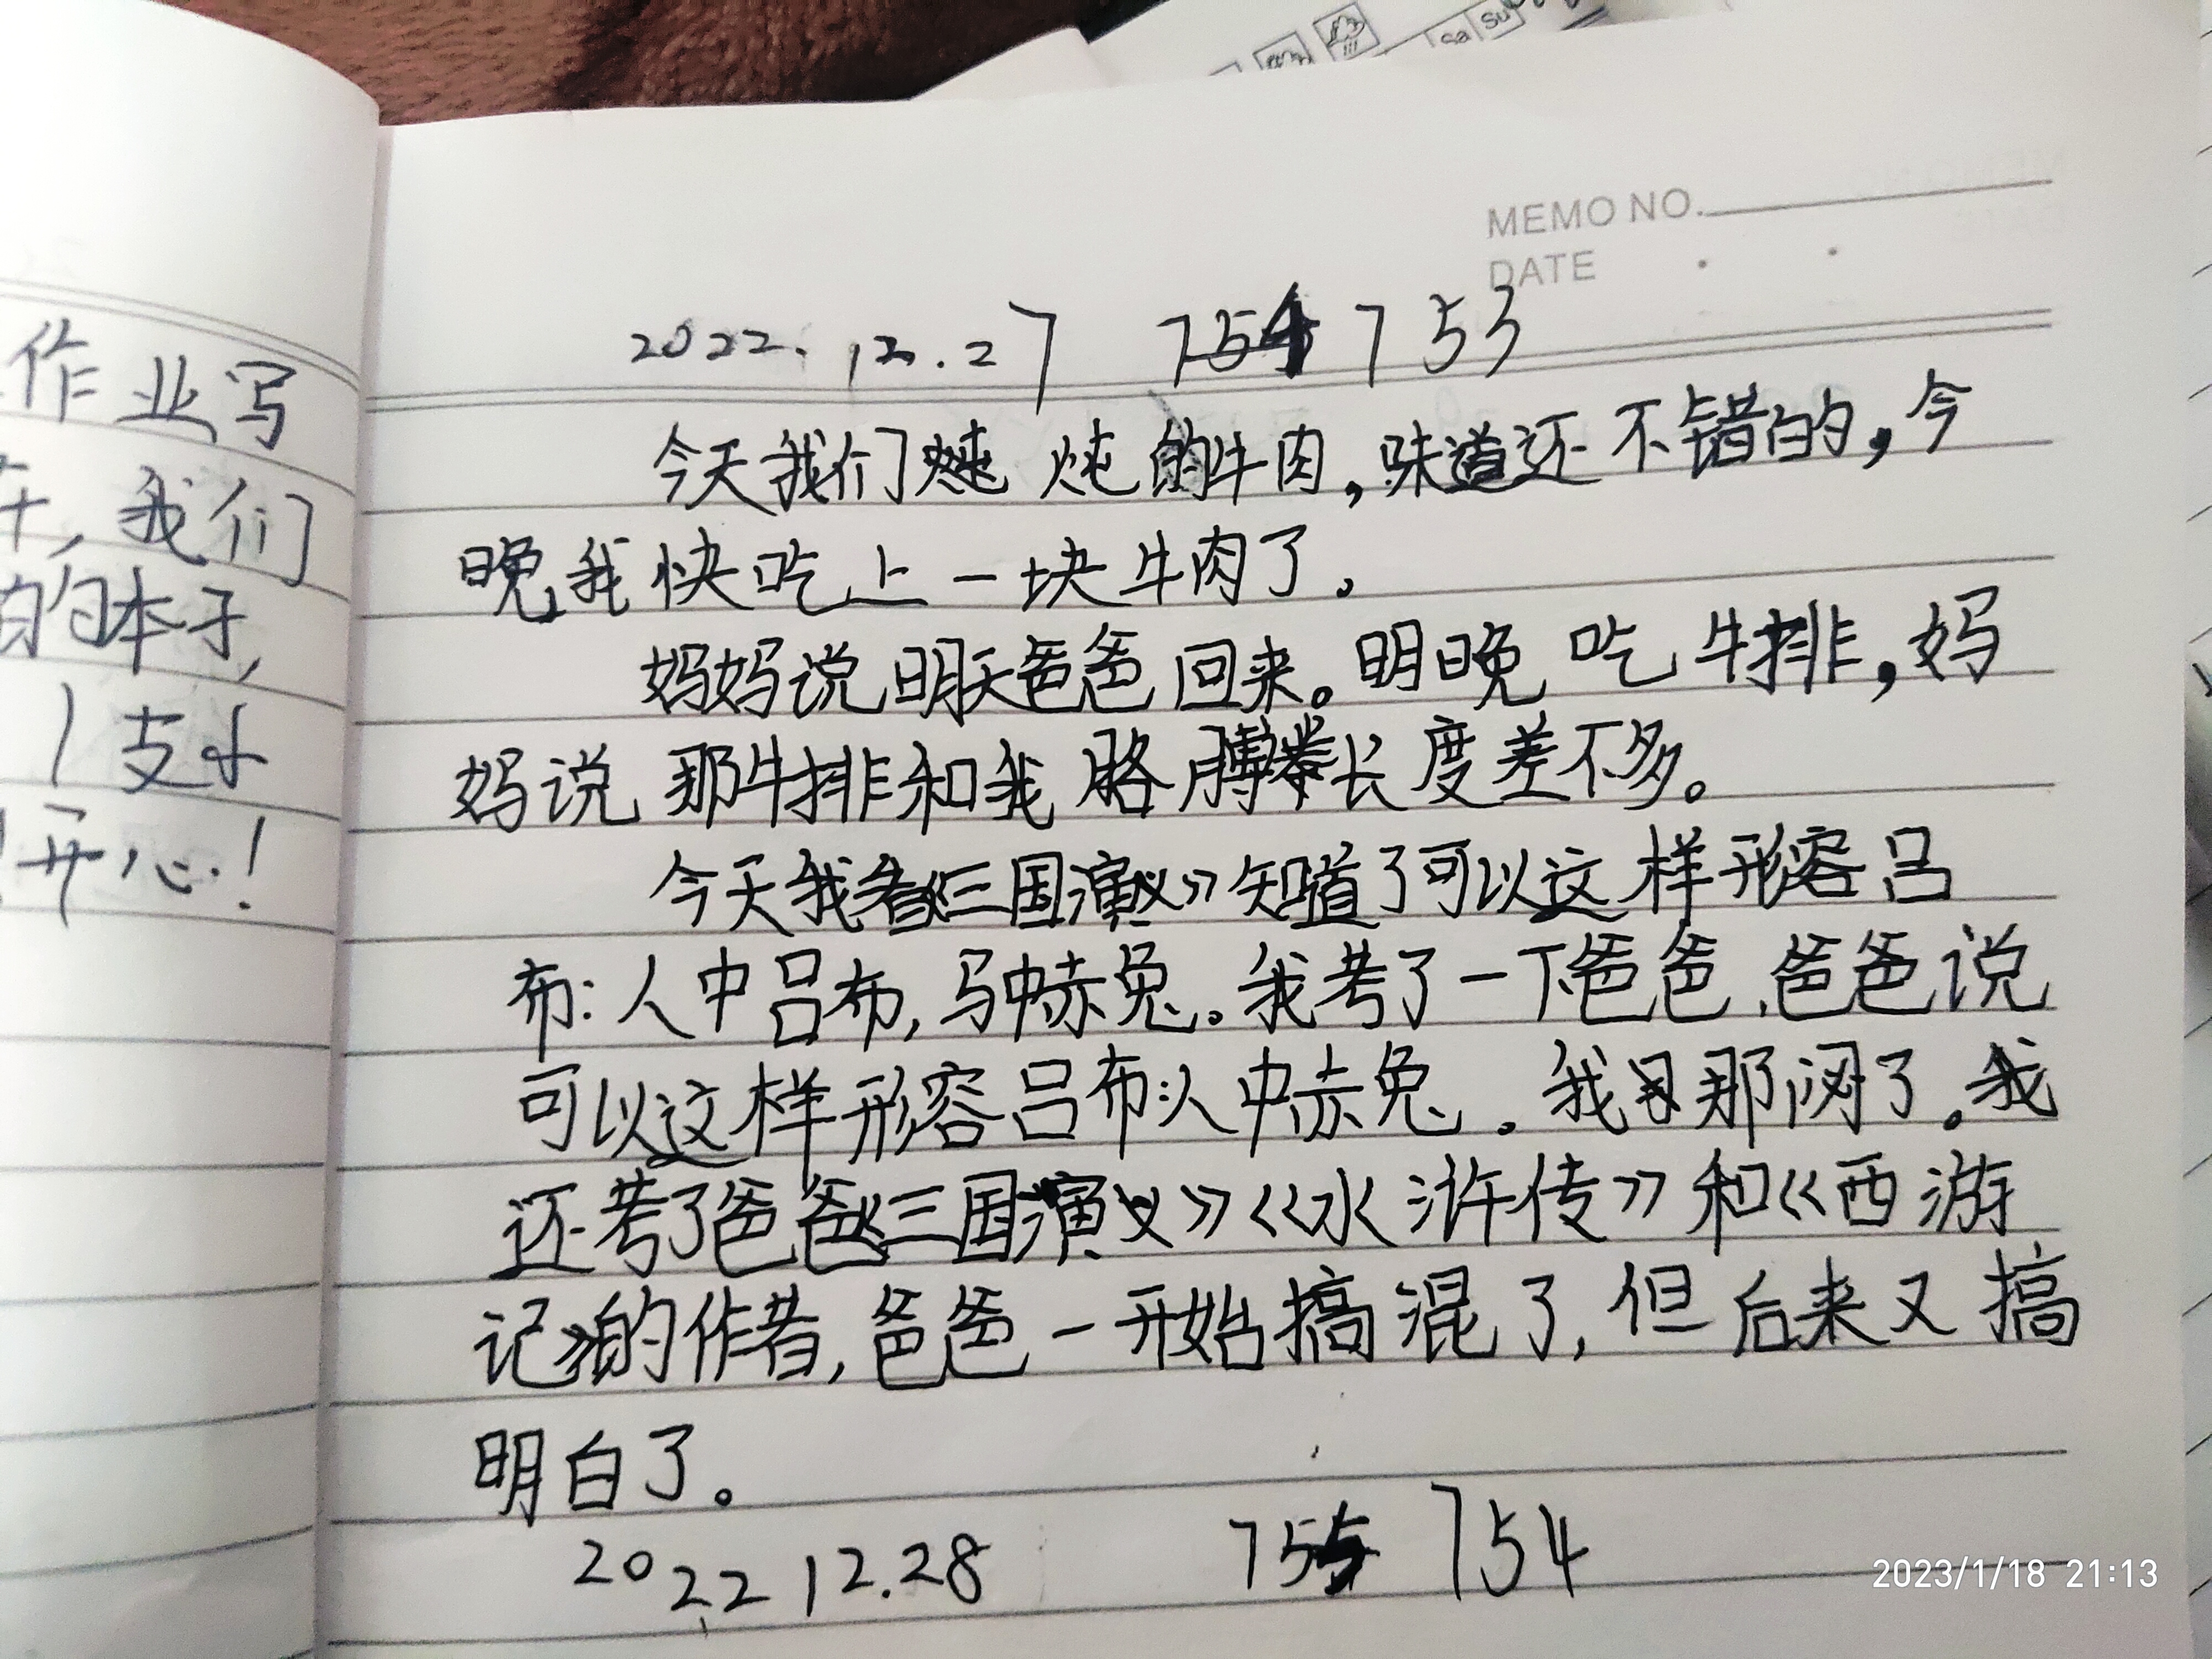 Sa Su
MEMO NO.
DATE
作业写
我们
的本子,
1支小
开心!
2022.12.27 753
今天我们炖炖的牛肉,味道还不错的,今
晚,我快吃上一块牛肉了。
妈妈说明天爸爸回来。明晚吃牛排,妈
妈说那牛排和我胳膊长度差不多。
今天我看《三国演义》知道了可以这样形容吕
布:人中吕布,马中赤兔。我考了一下爸爸,爸爸说
可以这样形容吕布:人中赤兔。我那闷了。我
还考了爸爸《三国演义》《水浒传》和《西游
记》的作者,爸爸一开始搞混了,但后来又搞
明白了。
2022 12.28 755 754
2023/1/18 21:13